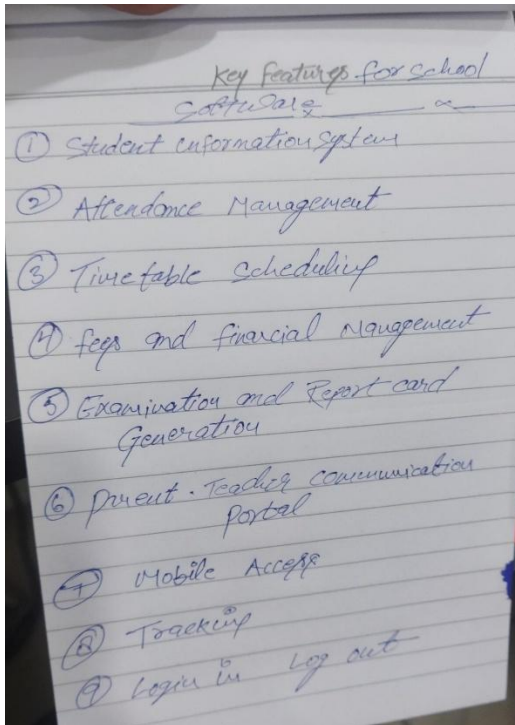 Key Features for School
Software
① Student Information System
② Attendance Management
③ Timetable Scheduling
④ fees and financial Management
⑤ Examination and Report card
Generation
⑥ Parent-Teacher communication
Portal
⑦ Mobile Access
⑧ Tracking
⑨ Login in Log out